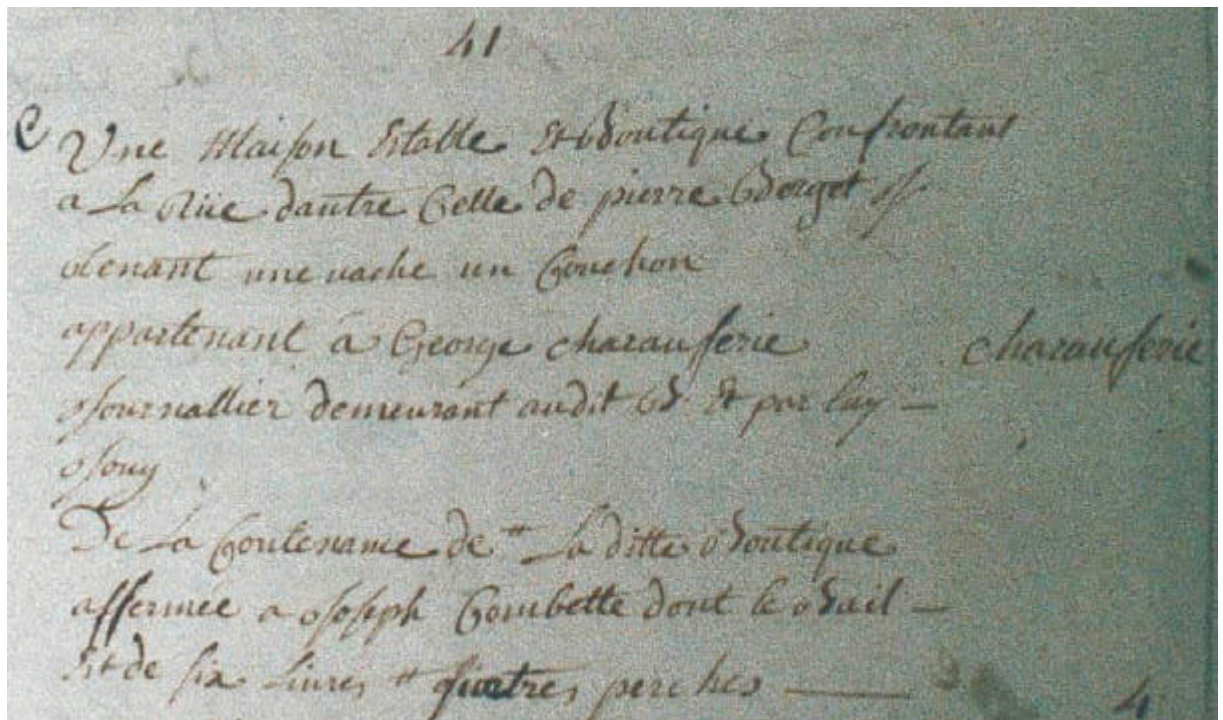 41
C Une Maison Estable Et Boutique Confrontant
a La Rüe dautre Celle de pierre Borget Et
tenant une vache un Couchon
appartenant à George charauserie charauserie
Journallier demeurant audit B. Et par luy
Jouy
De La Contenance de # La ditte Boutique
affermée a Joseph Combette dont le Bail
Est de six Livres # quatres perches 4